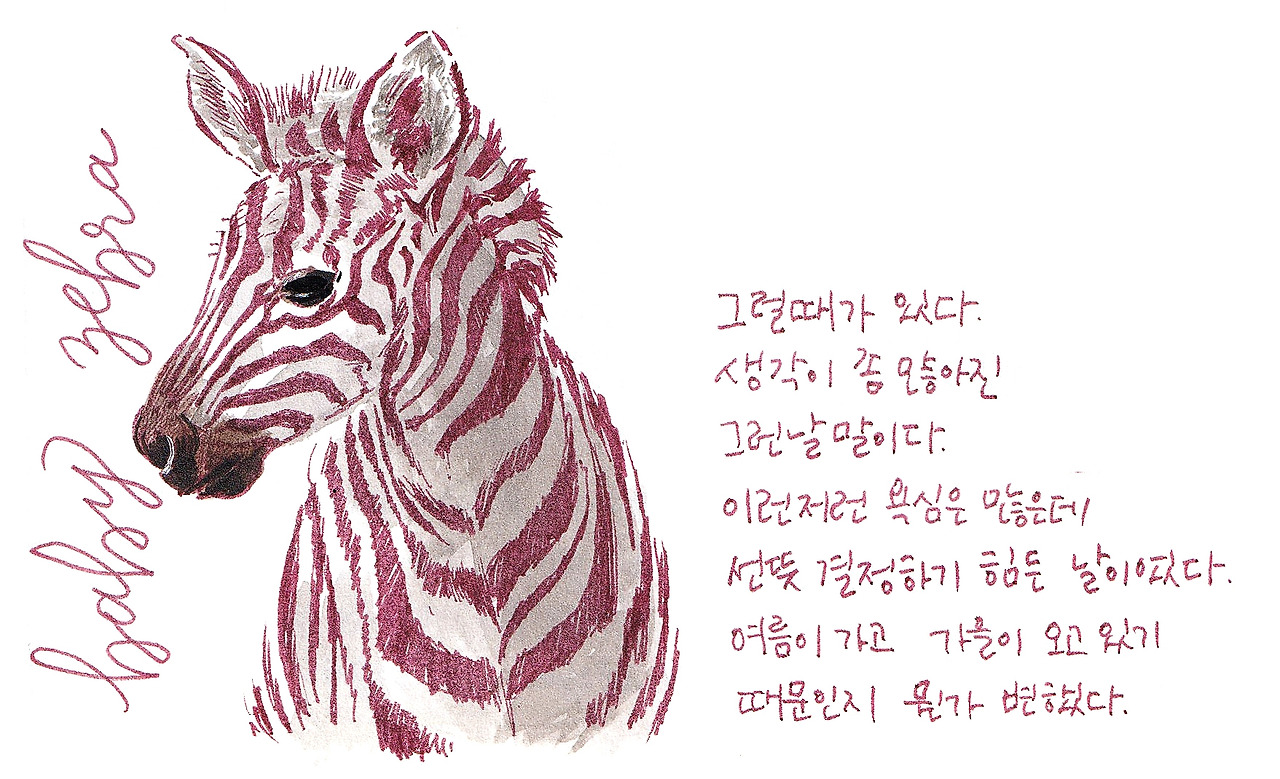 baby zebra
그럴때가 있다.
생각이 좀 많아진
그런날말이다.
이런저런 욕심은 많은데
선뜻 결정하기 힘든 날이었다.
여름이 가고 가을이 오고 있기
때문인지 뭔가 변했다.